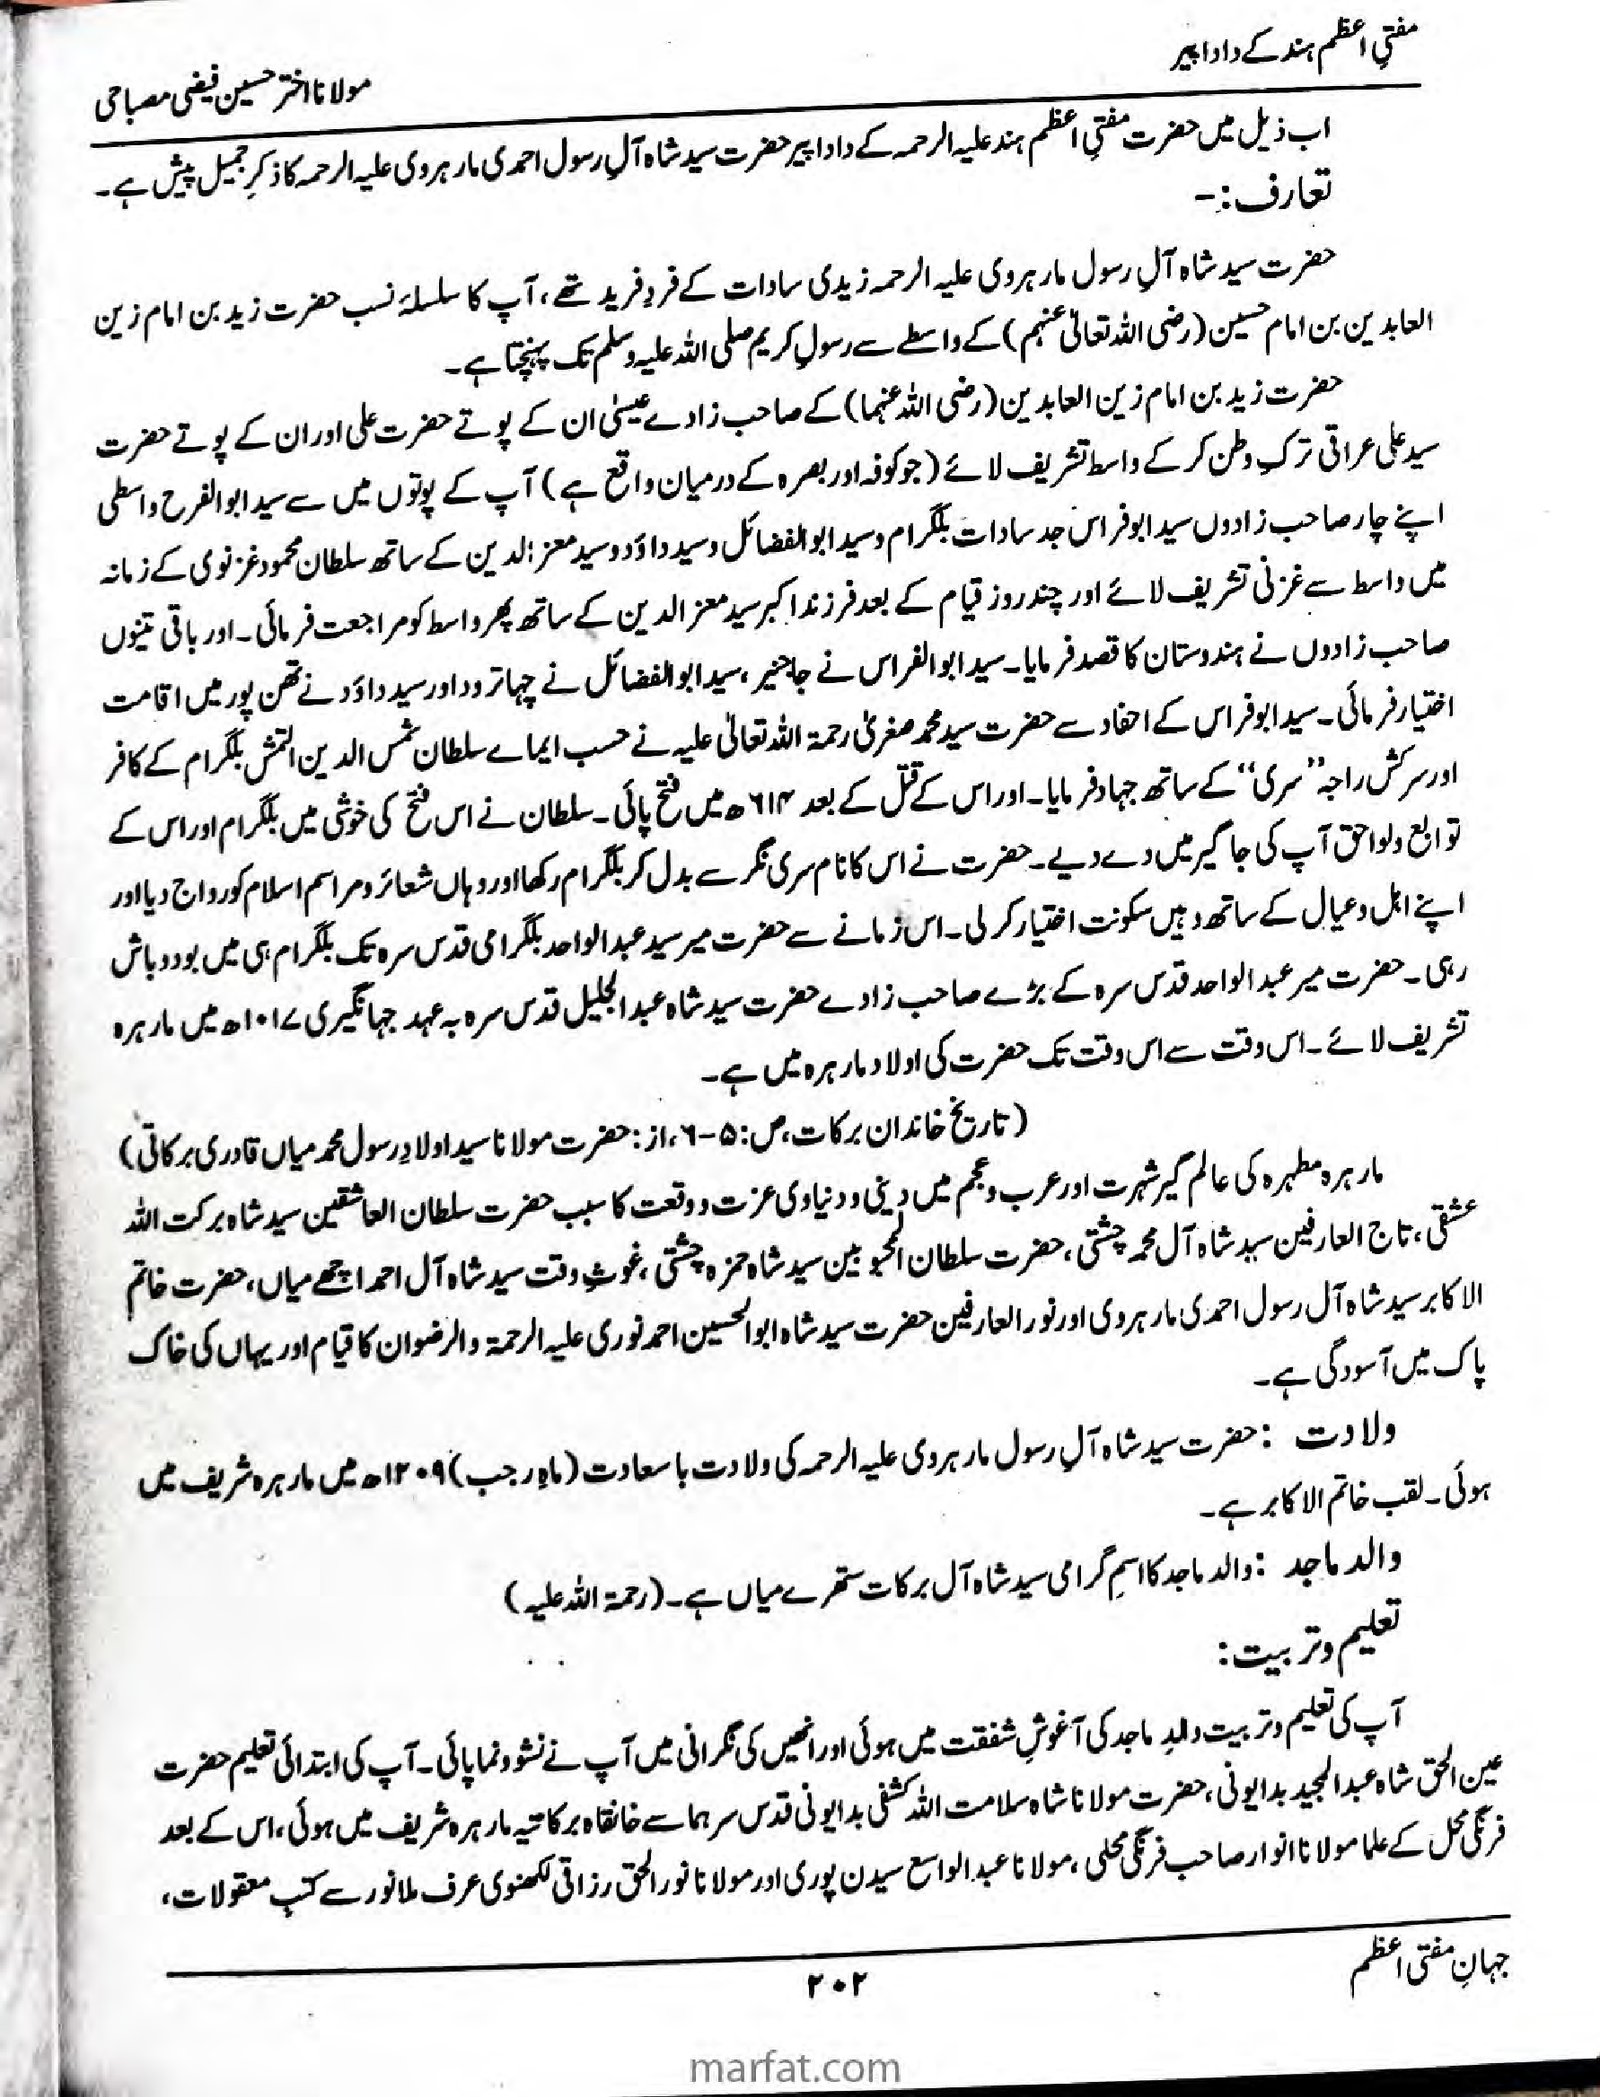 مفتیِ اعظم ہند کے دادا پیر
مولانا اختر حسین فیضی مصباحی
اب ذیل میں حضرت مفتیِ اعظم ہند علیہ الرحمہ کے دادا پیر حضرت سید شاہ آلِ رسول احمدی مارہروی علیہ الرحمہ کا ذکرِ جمیل پیش ہے۔
تعارف:-
حضرت سید شاہ آلِ رسول مارہروی علیہ الرحمہ زیدی سادات کے فردِ فرید تھے، آپ کا سلسلۂ نسب حضرت زید بن امام زین
العابدین بن امام حسین (رضی اللہ تعالیٰ عنہم) کے واسطے سے رسولِ کریم صلی اللہ علیہ وسلم تک پہنچتا ہے۔
حضرت زید بن امام زین العابدین (رضی اللہ عنہما) کے صاحب زادے عیسیٰ ان کے پوتے حضرت علی اور ان کے پوتے حضرت
سید علی عراقی ترکِ وطن کر کے واسط تشریف لائے (جو کوفہ اور بصرہ کے درمیان واقع ہے) آپ کے پوتوں میں سے سید ابوالفرح واسطی
اپنے چار صاحب زادوں سید ابوفراس جد سادات بلگرام و سید ابوالفضائل و سید داؤد و سید معز الدین کے ساتھ سلطان محمود غزنوی کے زمانہ
میں واسط سے غزنی تشریف لائے اور چند روز قیام کے بعد فرزند اکبر سید معز الدین کے ساتھ پھر واسط کو مراجعت فرمائی۔ اور باقی تینوں
صاحب زادوں نے ہندوستان کا قصد فرمایا۔ سید ابوالفراس نے جاجنیر، سید ابوالفضائل نے چہاترود اور سید داؤد نے تھن پور میں اقامت
اختیار فرمائی۔ سید ابوفراس کے احفاد سے حضرت سید محمد صغریٰ رحمۃ اللہ تعالیٰ علیہ نے حسب ایماے سلطان شمس الدین التمش بلگرام کے کافر
اور سرکش راجہ ”سری“ کے ساتھ جہاد فرمایا۔ اور اس کے قتل کے بعد ۶۱۴ھ میں فتح پائی۔ سلطان نے اس فتح کی خوشی میں بلگرام اور اس کے
توابع و لواحق آپ کی جاگیر میں دے دیے۔ حضرت نے اس کا نام سری نگر سے بدل کر بلگرام رکھا اور وہاں شعائر و مراسم اسلام کو رواج دیا اور
اپنے اہل و عیال کے ساتھ وہیں سکونت اختیار کر لی۔ اس زمانے سے حضرت میر سید عبدالواحد بلگرامی قدس سرہ تک بلگرام ہی میں بود و باش
رہی۔ حضرت میر عبدالواحد قدس سرہ کے بڑے صاحب زادے حضرت سید شاہ عبدالجلیل قدس سرہ بہ عہد جہانگیری ۱۰۱۷ھ میں مارہرہ
تشریف لائے۔ اس وقت سے اس وقت تک حضرت کی اولاد مارہرہ میں ہے۔
(تاریخ خاندان برکات، ص: ۵-۶، از: حضرت مولانا سید اولادِ رسول محمد میاں قادری برکاتی)
مارہرہ مطہرہ کی عالم گیر شہرت اور عرب و عجم میں دینی و دنیاوی عزت و وقعت کا سبب حضرت سلطان العاشقین سید شاہ برکت اللہ
عشقی، تاج العارفین سید شاہ آل محمد چشتی، حضرت سلطان المحبوبین سید شاہ حمزہ چشتی، غوثِ وقت سید شاہ آل احمد اچھے میاں، حضرت خاتم
الاکابر سید شاہ آل رسول احمدی مارہروی اور نور العارفین حضرت سید شاہ ابوالحسین احمد نوری علیہ الرحمۃ والرضوان کا قیام اور یہاں کی خاک
پاک میں آسودگی ہے۔
ولادت : حضرت سید شاہ آلِ رسول مارہروی علیہ الرحمہ کی ولادت باسعادت (ماہِ رجب) ۱۲۰۹ھ میں مارہرہ شریف میں
ہوئی۔ لقب خاتم الاکابر ہے۔
والد ماجد : والد ماجد کا اسمِ گرامی سید شاہ آل برکات ستھرے میاں ہے۔ (رحمۃ اللہ علیہ)
تعلیم و تربیت:
آپ کی تعلیم و تربیت والدِ ماجد کی آغوشِ شفقت میں ہوئی اور انھیں کی نگرانی میں آپ نے نشو و نما پائی۔ آپ کی ابتدائی تعلیم حضرت
عین الحق شاہ عبدالمجید بدایونی، حضرت مولانا شاہ سلامت اللہ کشفی بدایونی قدس سرہما سے خانقاہ برکاتیہ مارہرہ شریف میں ہوئی، اس کے بعد
فرنگی محل کے علما مولانا انوار صاحب فرنگی محلی، مولانا عبدالواسع سیدن پوری اور مولانا نور الحق رزاقی لکھنوی عرف ملا نور سے کتبِ معقولات،
جہانِ مفتی اعظم
۲۰۲
marfat.com